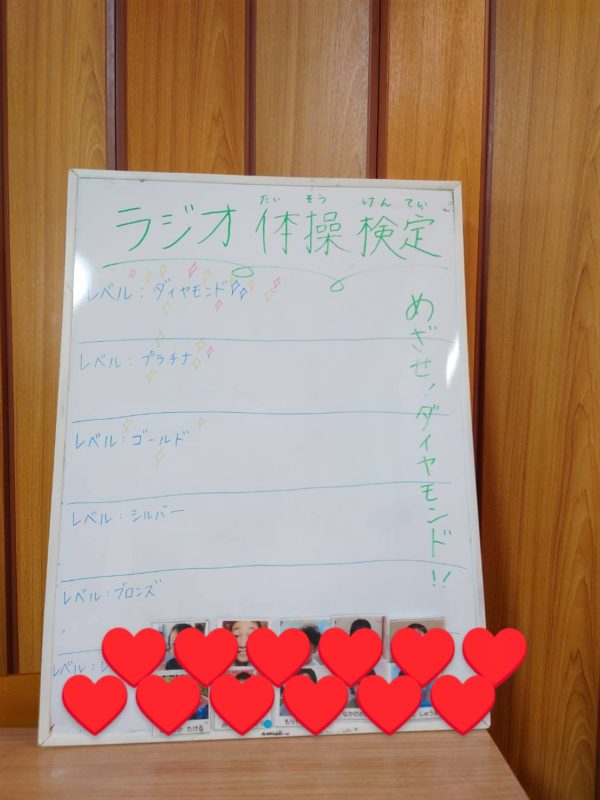 たいそう けんてい
ラジオ体操検定
レベル：ダイヤモンド
レベル：プラチナ
レベル：ゴールド
レベル：シルバー
レベル：ブロンズ
レベル：
めざせ！ダイヤモンド!!
たける